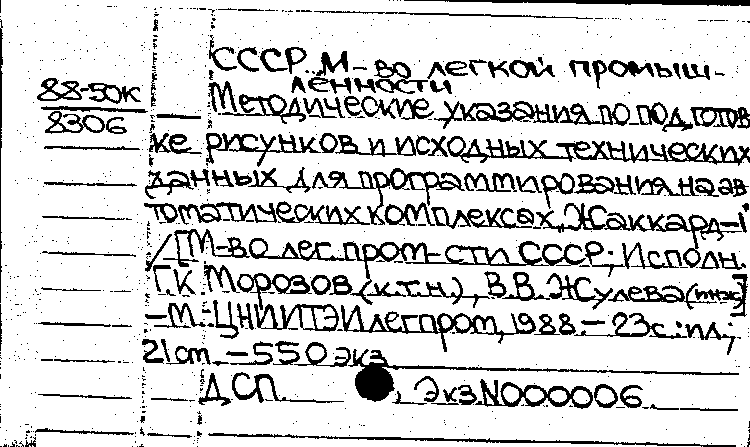 СССР. М-во легкой промыш-
ленности
88-50к
8306
Методические указания по подготов
ке рисунков и исходных технических
данных для программирования на ав
томатических комплексах „Жаккард-1"
/[М-во лег. пром-сти СССР; Исполн.
Г.К Морозов (к.т.н.), В.В. Жулева (инж)]
-М.: ЦНИИТЭИлегпром, 1988.- 23с.: ил.;
21 cm. -550 экз
ДСП. , Экз N000006.